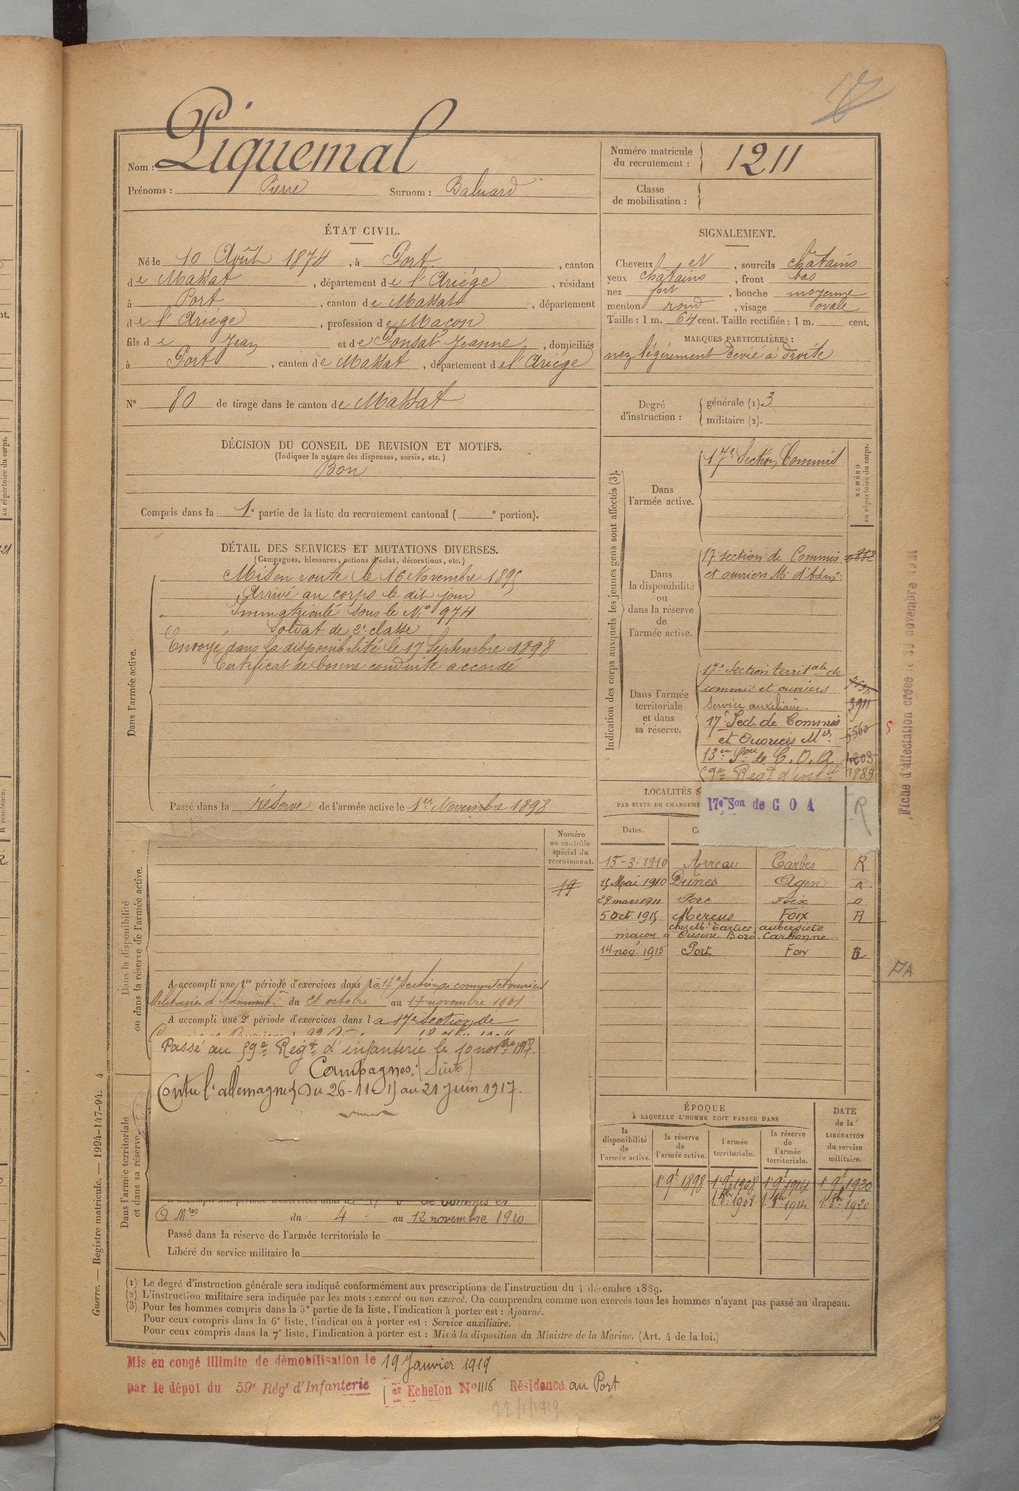 Nom : Piquemal
Prénoms : Pierre Surnom : Baluard
Numéro matricule du recrutement : 1211
Classe de mobilisation :
ÉTAT CIVIL.
Né le 10 Août 1874, à Port, canton
de Massat, département de l'Ariège, résidant
à Port, canton de Massat, département
de l'Ariège, profession de Maçon
fils de Jean et de Gonsat Jeanne, domiciliés
à Port, canton de Massat, département de l'Ariège
N° 80 de tirage dans le canton de Massat
SIGNALEMENT.
Cheveux et, sourcils châtains
yeux châtains, front bas
nez fort, bouche moyenne
menton rond, visage ovale
Taille : 1 m. 64 cent. Taille rectifiée : 1 m. cent.
MARQUES PARTICULIÈRES :
nez légèrement dévié à droite
Degré d'instruction : générale (1) 3
militaire (2).
DÉCISION DU CONSEIL DE REVISION ET MOTIFS.
(Indiquer la nature des dispenses, sursis, etc.)
Bon
Compris dans la 1e partie de la liste du recrutement cantonal ( e portion).
DÉTAIL DES SERVICES ET MUTATIONS DIVERSES.
(Campagnes, blessures, actions d'éclat, décorations, etc.)
Dans l'armée active.
Mis en route le 16 Novembre 1895
Arrivé au corps le dit jour
Immatriculé sous le No 974
Soldat de 2e classe
Envoyé dans la disponibilité le 17 Septembre 1898
Certificat de bonne conduite accordé
Passé dans la réserve de l'armée active le 1er Novembre 1898
Indication des corps auxquels les jeunes gens sont affectés (3).
NUMÉRO au répertoire du corps.
Dans l'armée active.
17e Section Commis
Dans la disponibilité ou dans la réserve de l'armée active.
17 section de Commis
et ouvriers Mi d'Admi.
Dans l'armée territoriale et dans sa réserve.
17e Section territale de
commis et ouvriers
Service auxiliaire. 3911
17e Sect. de Commis
et Ouvriers Mres 5560
13e Son de C. O. A. 1203
59e Regt d'infie 1989
17e Son de C O A R
Fiche d'affectation créée le 30 novembre 1915
LOCALITÉS S
PAR SUITE DE CHANGEME
Dates.
15-3-1910 Arreau Tarbes R
15 Mai 1910 Dunes Agen R.
29 mars 1911 Port Foix
5 Oct. 1915 Mercus Foix R
chez Mr Cartier aubergiste
maçon à Usine Boro-Carbonne
14 nov. 1915 Port Foix
Numéro au contrôle spécial du recrutement.
Dans la disponibilité ou dans la réserve de l'armée active.
A accompli une 1re période d'exercices dans la 17e Section de commis et ouvriers
Militaires d'Administ.on du 21 octobre au 17 novembre 1901
A accompli une 2e période d'exercices dans la 17e section de
Passé au 59e Regt d'infanterie le 10 novbre 1917.
Campagnes : (Suite)
Contre l'allemagne du 26-11-15 au 21 juin 1917.
Dans l'armée territoriale et dans sa réserve.
O Mres du 4 au 12 novembre 1910
Passé dans la réserve de l'armée territoriale le
Libéré du service militaire le
ÉPOQUE
À LAQUELLE L'HOMME DOIT PASSER DANS
la disponibilité de l'armée active. la réserve de l'armée active. l'armée territoriale. la réserve de l'armée territoriale.
DATE de la LIBÉRATION du service militaire.
1 9e 1898 1 9e 1908 1 9e 1914 1 9e 1920
1 8bre 1908 1 8bre 1914 1 8bre 1920
(1) Le degré d'instruction générale sera indiqué conformément aux prescriptions de l'instruction du 4 décembre 1889.
(2) L'instruction militaire sera indiquée par les mots : exercé ou non exercé. On comprendra comme non exercés tous les hommes n'ayant pas passé au drapeau.
(3) Pour les hommes compris dans la 5e partie de la liste, l'indication à porter est : Ajourné.
Pour ceux compris dans la 6e liste, l'indication à porter est : Service auxiliaire.
Pour ceux compris dans la 7e liste, l'indication à porter est : Mis à la disposition du Ministre de la Marine. (Art. 4 de la loi.)
Guerre. — Registre matricule. — 1994-147-94. 4
Mis en congé illimité de démobilisation le 19 Janvier 1919
par le dépot du 59e Régt d'Infanterie 1er Echelon No 1116 Résidence au Port
22/1/1919